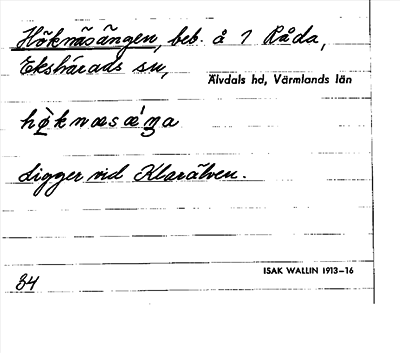 Höknäsängen, beb. å 1 Råda,
Ekshärads sn,
Älvdals hd, Värmlands län
Ligger vid Klarälven.
ISAK WALLIN 1913–16
34